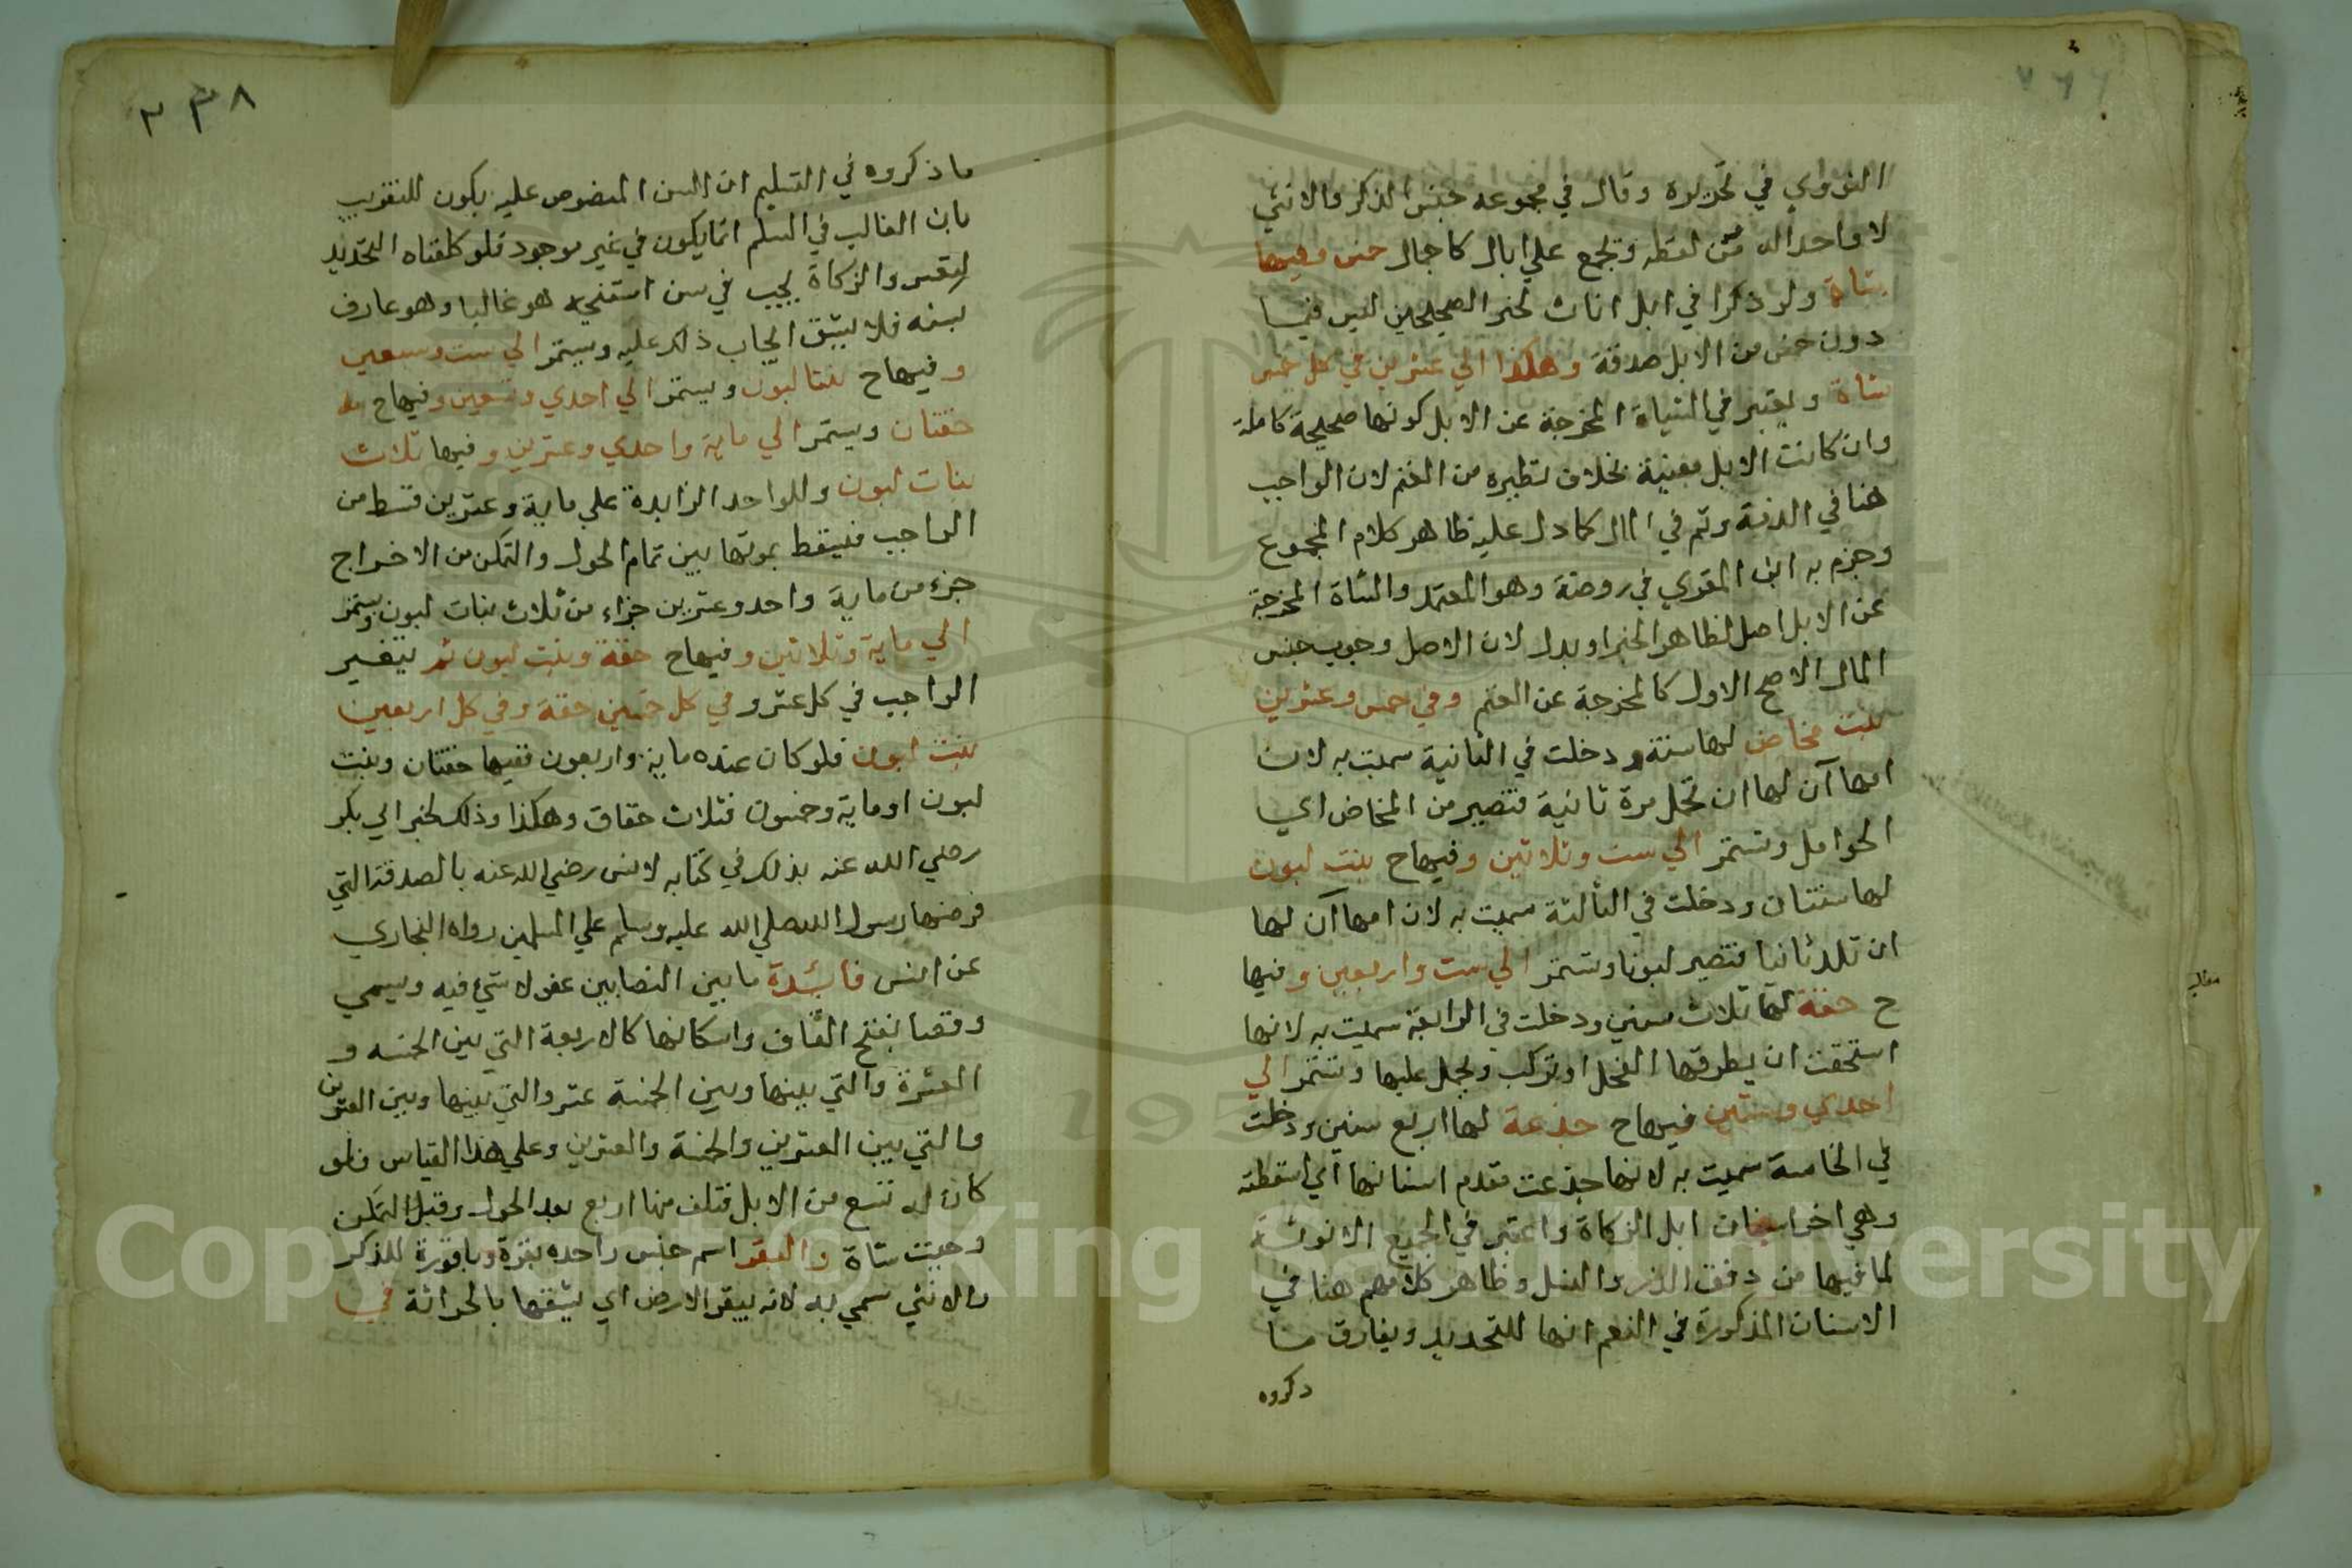 النووي في تحريره وقال في مجموعه جنس الذكر والانثي
لا واحد اله من لفظه وتجمع علي ابال كاجمال خمس وفيها
شاة ولو ذكرا في ابل اناث لخبر الصحيحين ليس فيما
دون خمس من الابل صدقة وهكذا الي عشرين في كل خمس
شاة ويعتبر في الشياة المخرجة عن الابل كونها صحيحة كاملة
وان كانت الابل معيبة بخلاف نظيره من الغنم لان الواجب
هنا في الذمة وثم في المال كما دل عليه ظاهر كلام المجموع
وجزم به ابن المقري في روضه وهو المعتمد والشاة المخرجة
عن الابل اصل لظاهر الخبر او بدل لان الاصل وجوب جنس
المال الاصح الاول كالمخرجة عن الغنم وفي خمس وعشرين
بنت مخاض لها سنة ودخلت في الثانية سميت به لان
امها آن لها ان تحمل مرة ثانية فتصير من المخاض اي
الحوامل وتستمر الي ست وثلاثين وفيها ح بنت لبون
لها سنتان ودخلت في الثالثة سميت به لان امها آن لها
ان تلد ثانيا فتصير لبونا وتستمر الي ست واربعين وفيها
ح حقة لها ثلاث سنين ودخلت في الرابعة سميت به لانها
استحقت ان يطرقها الفحل او تركب ويحمل عليها وتستمر الي
احدي وستين فيها ح جذعة لها اربع سنين ودخلت
في الخامسة سميت به لانها جذعت مقدم اسنانها اي اسقطته
وهي اخر اسنان ابل الزكاة واعتبر في الجميع الانوثة
لما فيها من رفق الدر والنسل وظاهر كلامهم هنا في
الاسنان المذكورة في النعم انها للتحديد ويفارق ما
ذكروه
٢٣٨
ما ذكروه في التسليم ان السن المنصوص عليه يكون للتقريب
بان الغالب في السلم انما يكون في غير موجود فلو كلفناه التحديد
لتعسر والزكاة يجب في سن استنتجه هو غالبا وهو عارف
بسنه فلا يشق ايجاب ذلك عليه ويستمر الي ست وسبعين
وفيها ح بنتا لبون ويستمر الي احدي وتسعين وفيها ح
حقتان ويستمر الي ماية واحدي وعشرين وفيها ثلاث
بنات لبون وللواحد الزايدة علي ماية وعشرين قسط من
الواجب فيسقط بموتها بين تمام الحول والتمكن من الاخراج
جزء من ماية واحد وعشرين جزاء من ثلاث بنات لبون ويستمر
الي ماية وثلاثين وفيها ح حقة وبنت لبون ثم يتغير
الواجب في كل عشر وفي كل خمسين حقة وفي كل اربعين
بنت لبون فلو كان عنده ماية واربعون ففيها حقتان وبنت
لبون او ماية وخمسون فثلاث حقاق وهكذا وذلك لخبر ابي بكر
رضي الله عنه بذلك في كتابه لانس رضي الله عنه بالصدقة التي
فرضها رسول الله صلي الله عليه وسلم علي المسلمين رواه البخاري
عن انس فائدة ما بين النصابين عفو لا شيء فيه ويسمي
وقصا بفتح القاف واسكانها كالاربعة التي بين الخمسة و
العشرة والتي بينها وبين الخمسة عشر والتي بينها وبين العشرين
والتي بين العشرين والخمسة والعشرين وعلي هذا القياس فلو
كان له تسع من الابل فتلف منها اربع بعد الحول وقبل التمكن
وجبت شاة والبقر اسم جنس واحده بقرة وباقورة للذكر
والانثي سمي به لانه يبقر الارض اي يشقها بالحراثة في
Copyright © King Saud University
1957